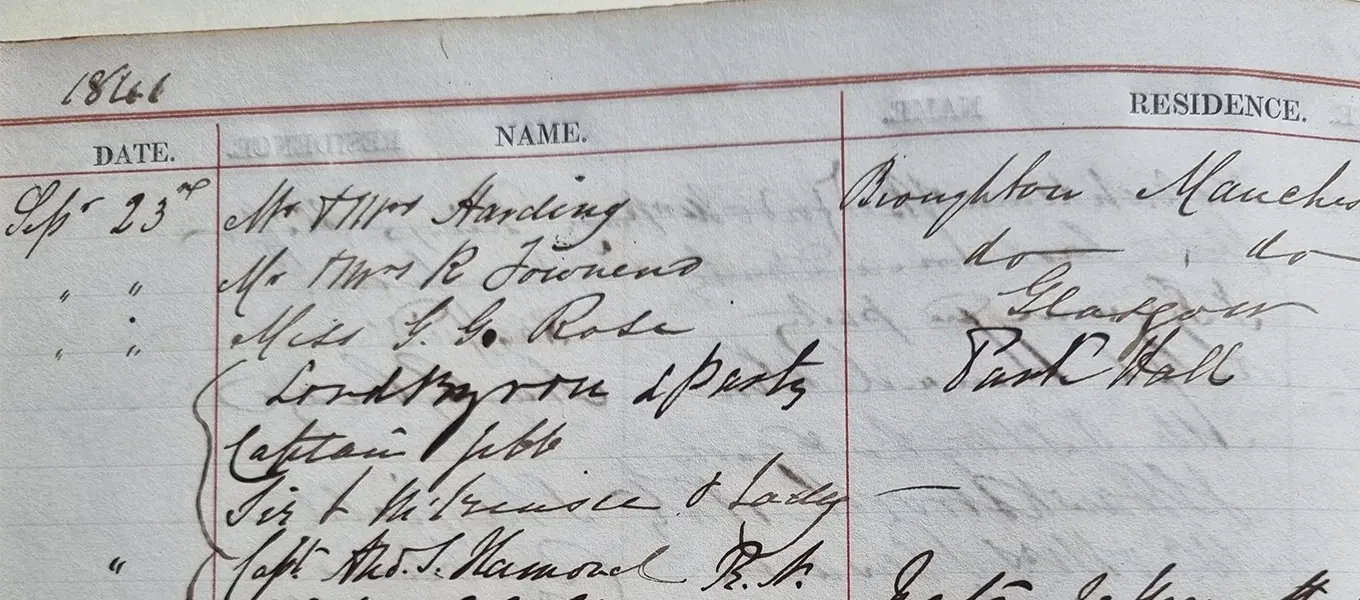 1861
DATE. NAME. RESIDENCE.
Sepr 23rd Mr & Mrs Harding Broughton Manches
" " Mr & Mrs R Townend do do
" " Miss G. G. Rose Glasgow
Lord Byron & Party Park Hall
Captain Jebb
Sir & Lady —
" Capt. And. S. Hamond R.N.